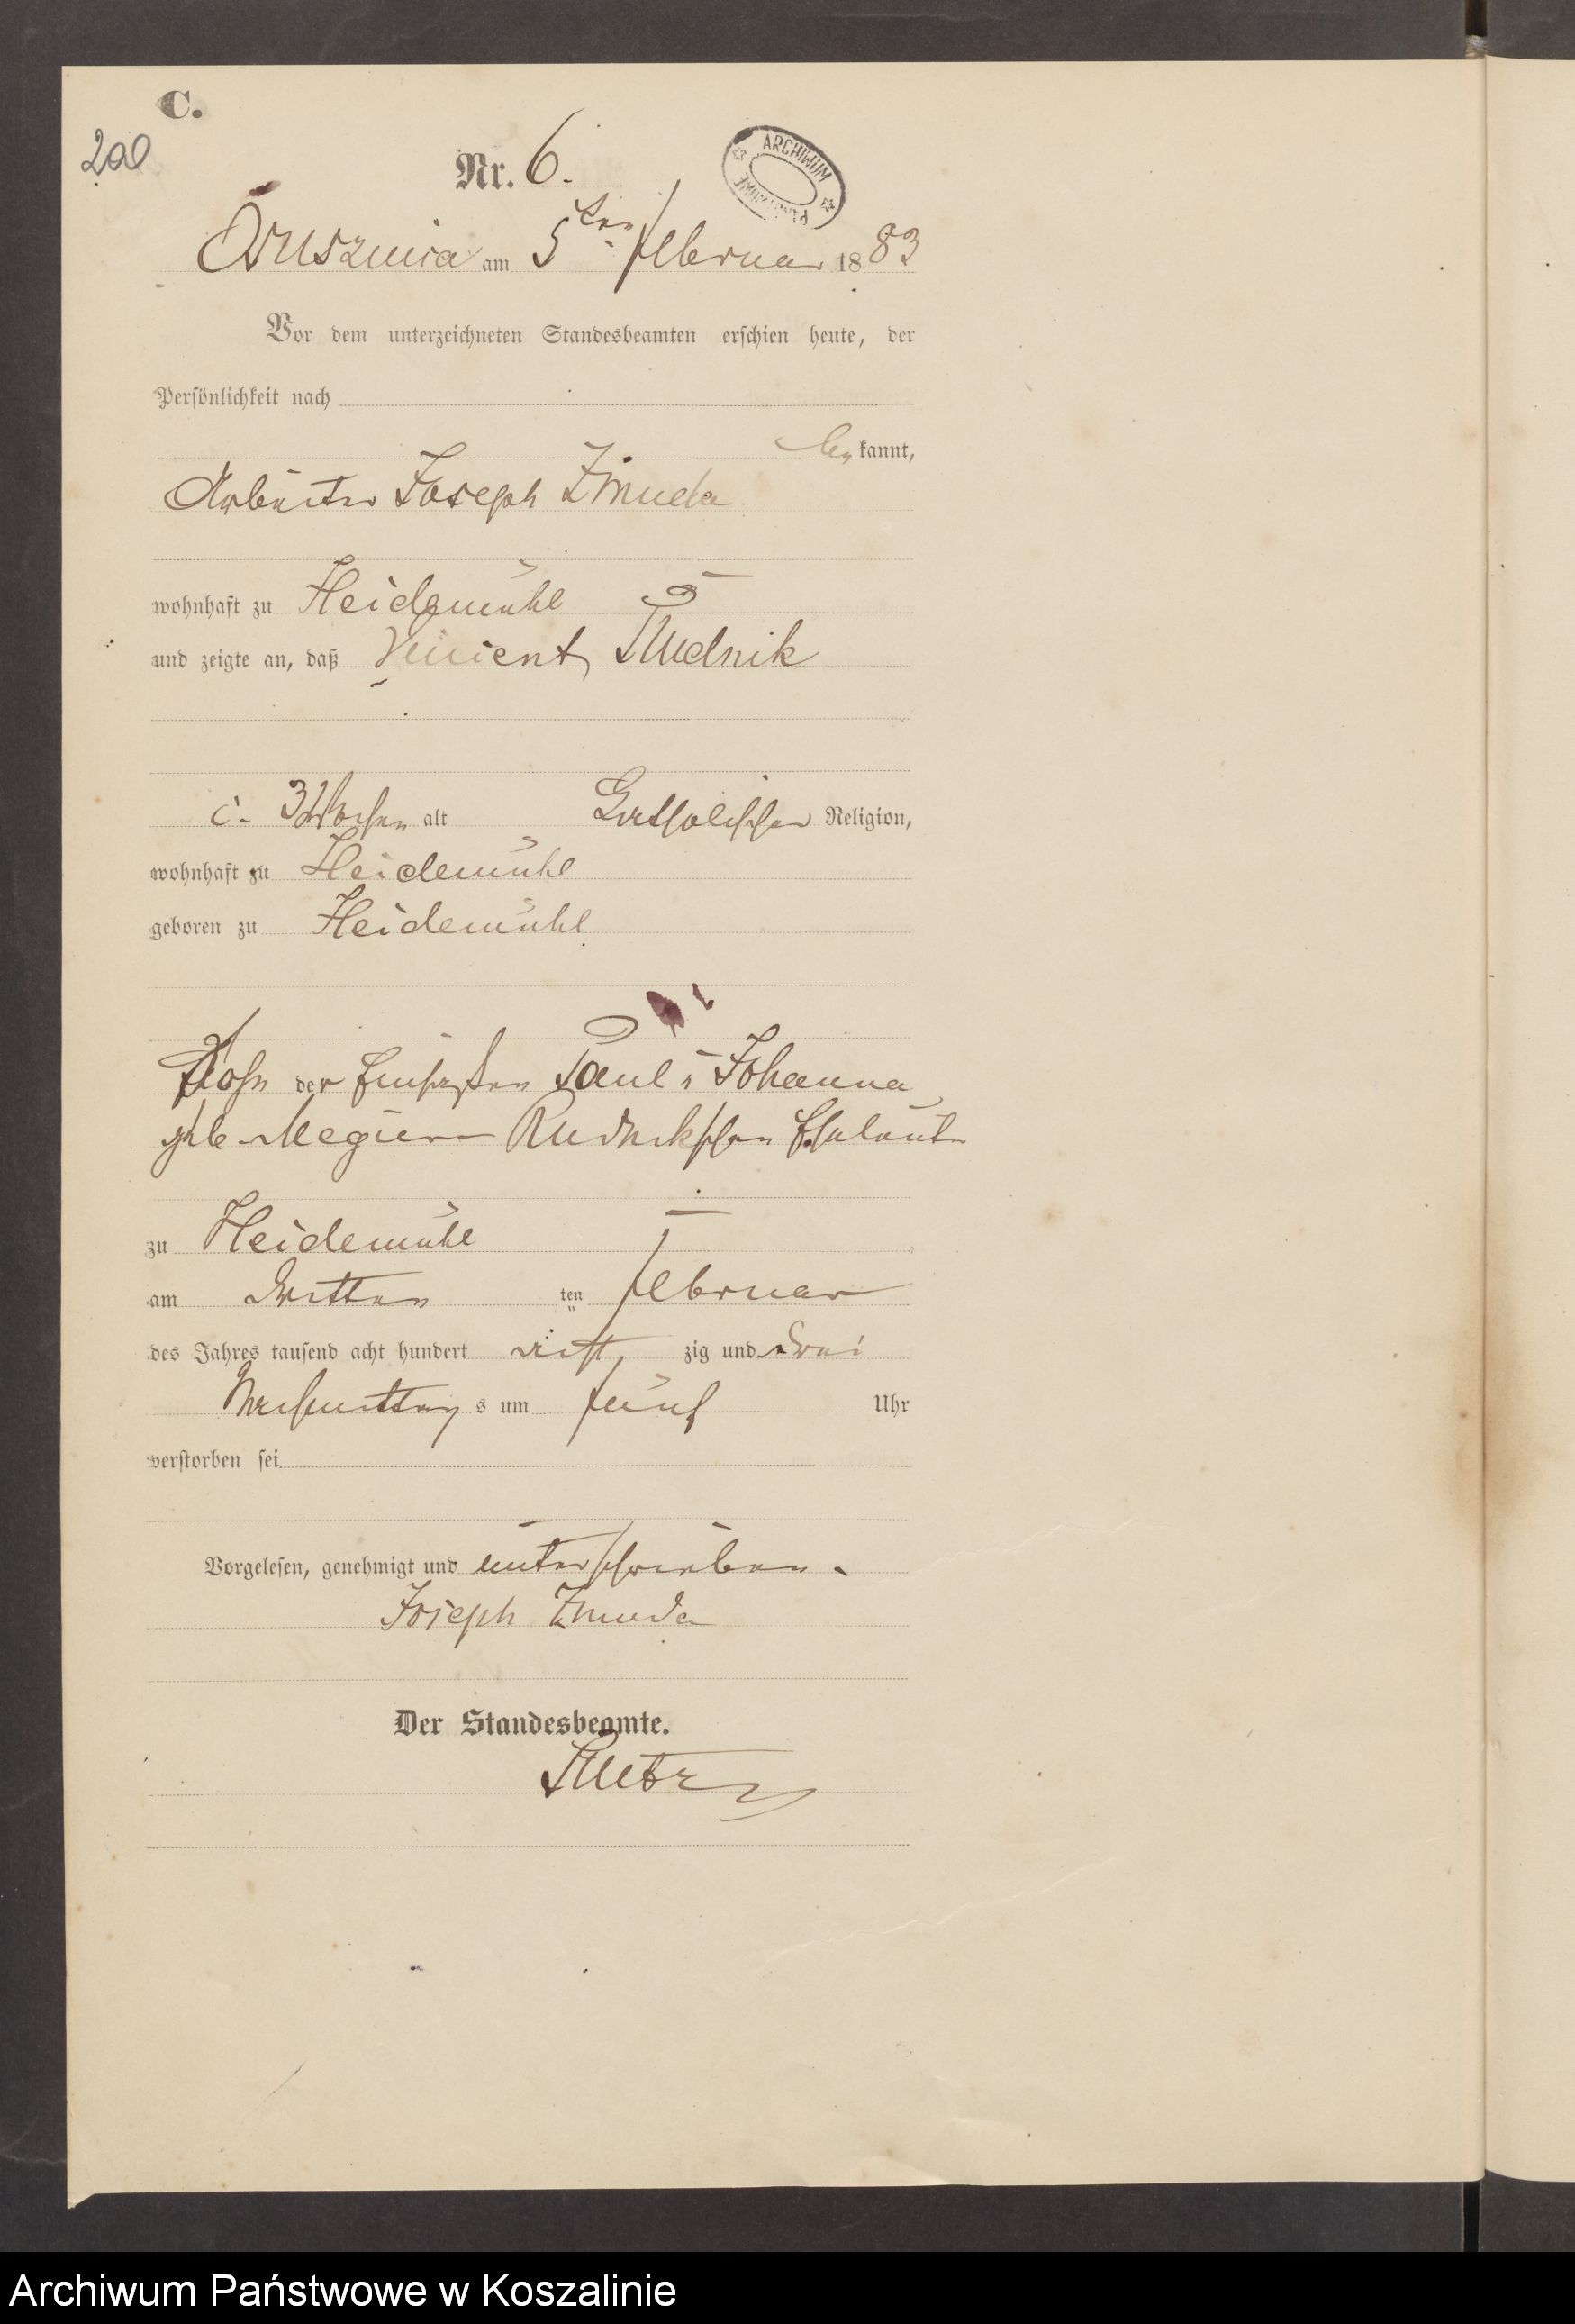 C.
200
Nr. 6.
ARCHIWUM PAŃSTWOWE
Brusznica am 5ten Februar 1883
Vor dem unterzeichneten Standesbeamten erschien heute, der
Persönlichkeit nach
be kannt,
Arbeiter Joseph Zmuda
wohnhaft zu Heidemühl
und zeigte an, daß Vincent Rudnik
c. 3 Wochen alt katholischer Religion,
wohnhaft zu Heidemühl
geboren zu Heidemühl
Sohn der Einsaßen Paul u Johanna
geb. Rudnikschen Eheleute
zu Heidemühl
am Dritten ten Februar
des Jahres tausend acht hundert acht zig und drei
Nachmittag s um fünf Uhr
verstorben sei
Vorgelesen, genehmigt und unterschrieben.
Joseph Zmuda
Der Standesbeamte.
Archiwum Państwowe w Koszalinie